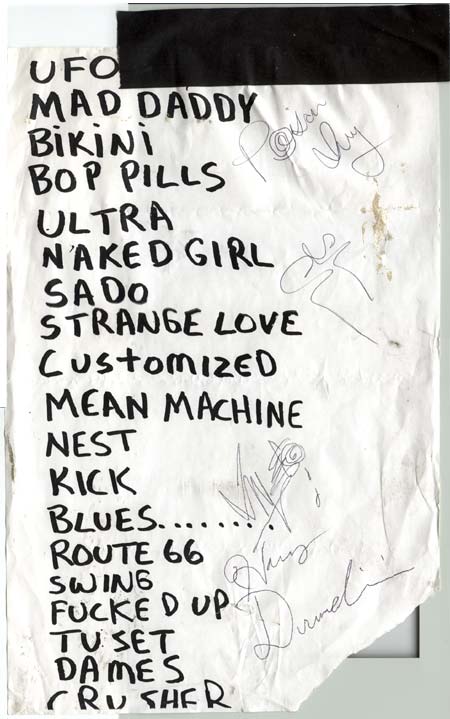 UFO
MAD DADDY
BiKiNi
BOP PILLS
Poison
Ivy
ULTRA
NAKED GIRL
SADO
STRANGE LOVE
CUSTOMIZED
MEAN MACHINE
NEST
KICK
BLUES........
ROUTE 66
SWING
FUCKED UP
TV SET
DAMES
CRUSHER